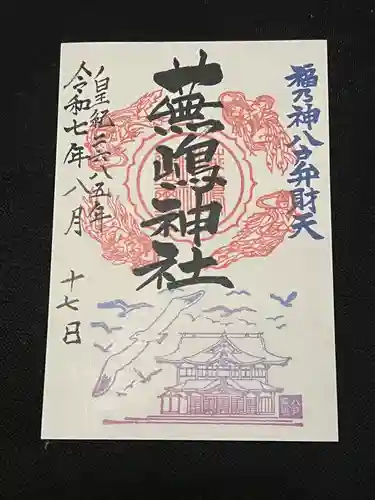 福乃神八戸弁財天
蕪嶋神社
皇紀二六八五年
令和七年八月
十七日